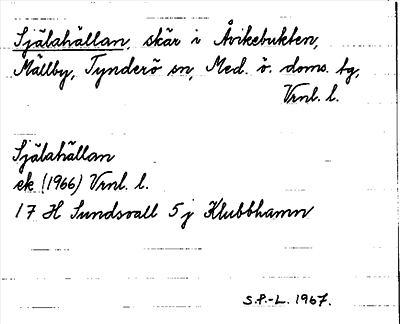 Själahällan, skär i Åvikebukten,
Mällby, Tynderö sn, Med. ö. doms. tg,
Vrnl. l.
Själahällan
ek (1966) Vrnl. l.
17 H Sundsvall 5 j Klubbhamn
S.P.-L. 1967.